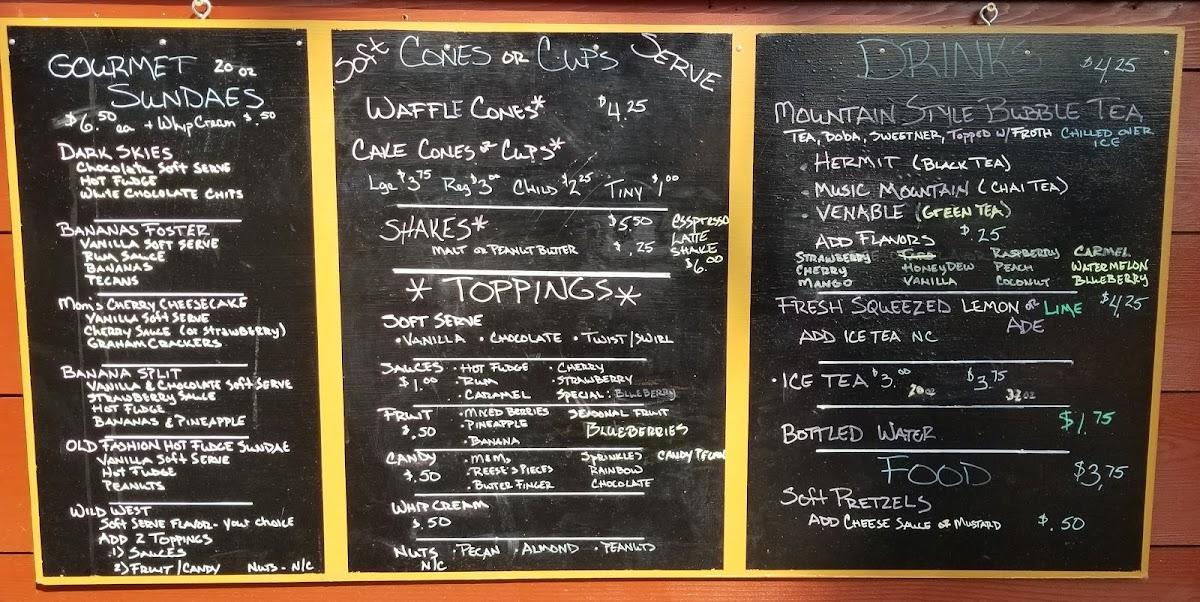 GOURMET 20 oz
SUNDAES
$6.50 ea + Whip Cream $.50
DARK SKIES
Chocolate Soft Serve
Hot Fudge
White Chocolate Chips
BANANAS FOSTER
Vanilla Soft Serve
Rum Sauce
Bananas
Pecans
Mom's Cherry Cheesecake
Vanilla Soft Serve
Cherry Sauce (or Strawberry)
Graham Crackers
BANANA SPLIT
Vanilla & Chocolate Soft Serve
Strawberry Sauce
Hot Fudge
Bananas & Pineapple
OLD FASHION HOT FUDGE SUNDAE
Vanilla Soft Serve
Hot Fudge
Peanuts
WILD WEST
Soft Serve Flavor - Your Choice
Add 2 Toppings
1) Sauces
2) Fruit/Candy Nuts - N/C
Soft CONES OR CUPS SERVE
WAFFLE CONES* $4.25
CAKE CONES or CUPS*
Lge $3.75 Reg $3.00 Child $2.25 TINY $1.00
SHAKES* $5.50
MALT or PEANUT BUTTER $.25
ESSPRESSO
LATTE
SHAKE
$6.00
* TOPPINGS *
SOFT SERVE
• VANILLA • CHOCOLATE • TWIST/SWIRL
SAUCES • HOT FUDGE • CHERRY
$1.00 • RUM • STRAWBERRY
• CARAMEL SPECIAL: BLUEBERRY
FRUIT • MIXED BERRIES SEASONAL FRUIT
$.50 • PINEAPPLE BLUEBERRIES
• BANANA
CANDY • M&Ms SPRINKLES CANDY PECAN
$.50 • REESE'S PIECES RAINBOW
• BUTTER FINGER CHOCOLATE
WHIP CREAM
$.50
NUTS • PECAN • ALMOND • PEANUTS
N/C
DRINKS $4.25
MOUNTAIN STYLE BUBBLE TEA
TEA, BOBA, SWEETNER, TOPPED W/FROTH CHILLED OVER
ICE
• HERMIT (BLACK TEA)
• MUSIC MOUNTAIN (CHAI TEA)
• VENABLE (GREEN TEA)
ADD FLAVORS $.25
STRAWBERRY RASPBERRY CARMEL
CHERRY HONEYDEW PEACH WATERMELON
MANGO VANILLA COCONUT BLUEBERRY
FRESH SQUEEZED LEMON or LIME $4.25
ADE
ADD ICE TEA NC
• ICE TEA $3.00 $3.75
20oz 32oz
BOTTLED WATER $1.75
FOOD $3.75
SOFT PRETZELS
ADD CHEESE SAUCE or MUSTARD $.50